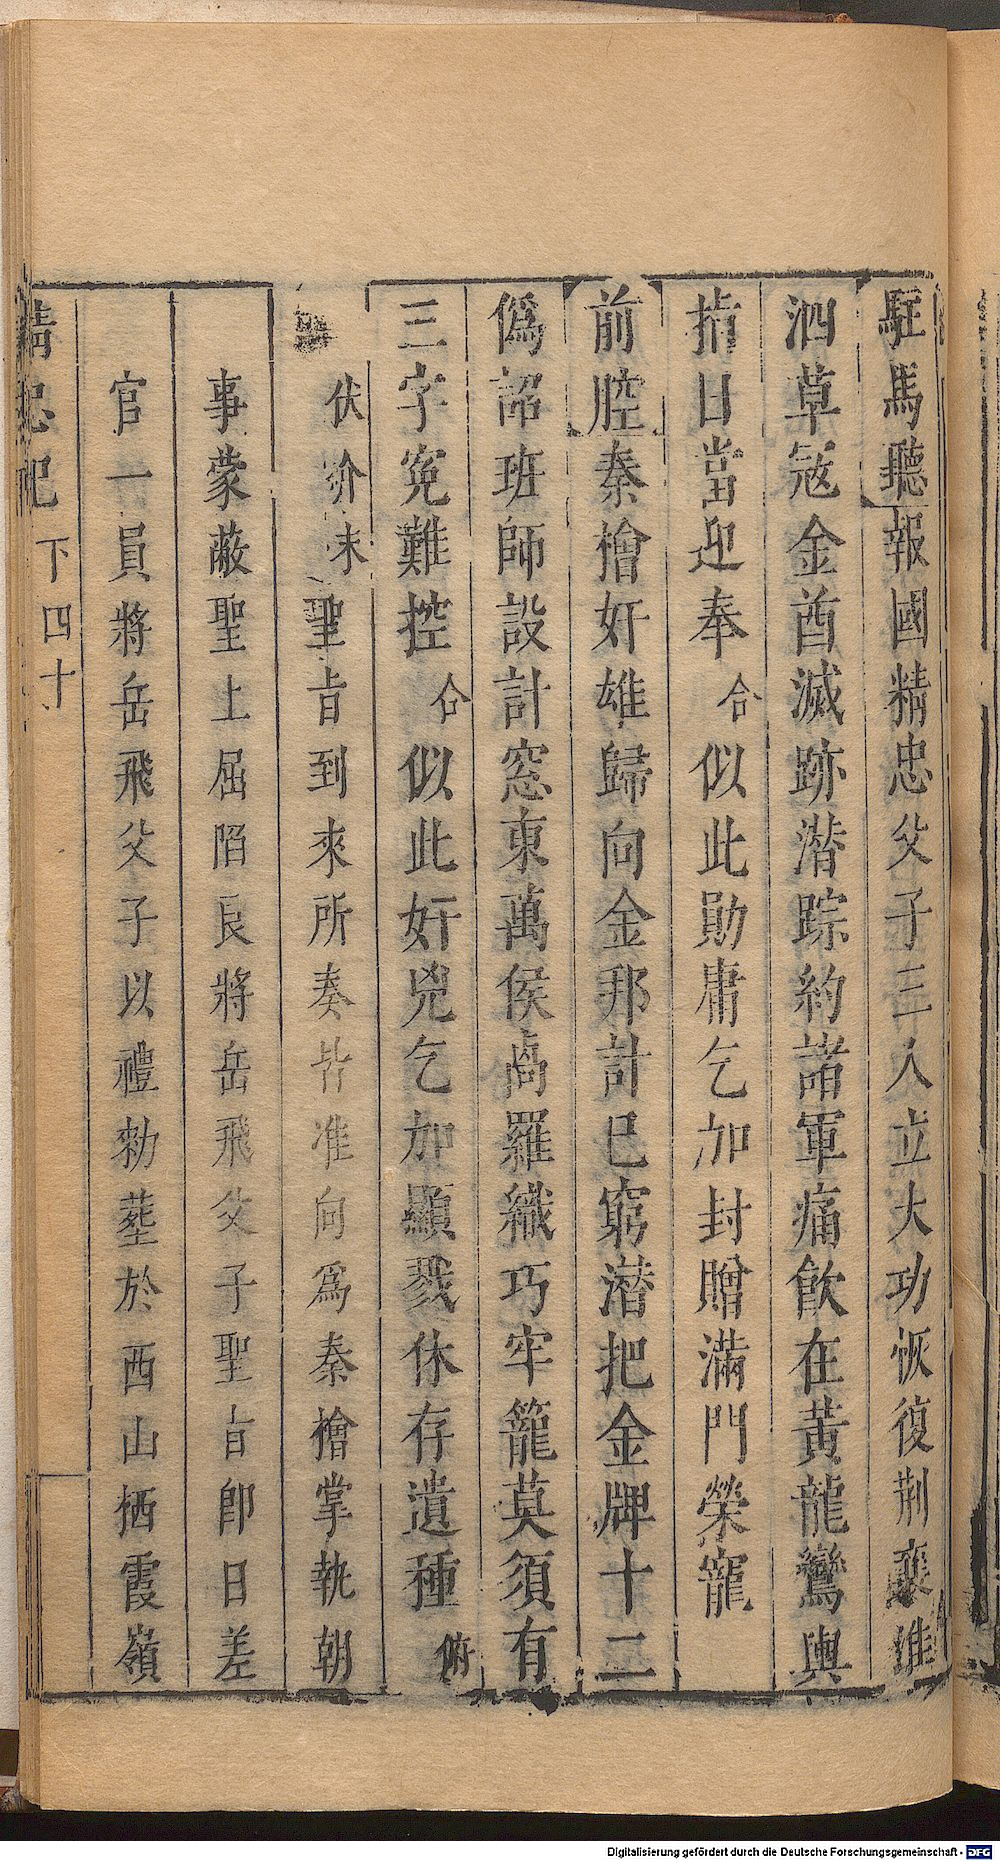 駐馬聽報國精忠父子三人立大功恢復荆襄淮
泗草𡨥金酋滅跡潛踪約諸軍痛飲在黃龍鸞輿
指日當迎奉合似此勛庸乞加封贈滿門榮寵
前腔秦檜奸雄歸向金邦計已窮潛把金牌十二
僞詔班師設計窓東萬侯卨羅織巧牢籠莫須有
三字寃難控合似此奸兇乞加顯戮休存遺種俯
伏介末聖旨到來所奏皆准向爲秦檜掌執朝
事蒙蔽聖上屈陷良將岳飛父子聖旨卽日差
官一員將岳飛父子以禮勑塟於西山栖霞嶺
精忠記 下 四十
Digitalisierung gefördert durch die Deutsche Forschungsgemeinschaft - DFG